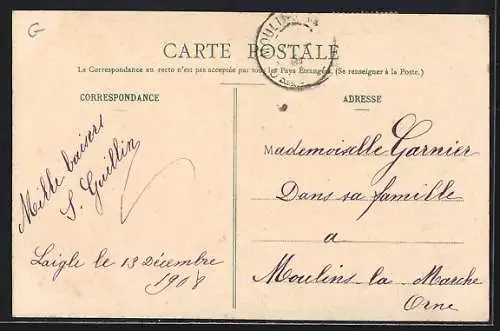 G
MOULINS LA
CARTE POSTALE
La Correspondance au recto n'est pas acceptée par tous les Pays Étrangers. (Se renseigner à la Poste.)
CORRESPONDANCE
Mille baisers
S. Guillin
Laigle le 13 Décembre
1908
ADRESSE
Mademoiselle Garnier
Dans sa famille
a
Moulins la Marche
Orne